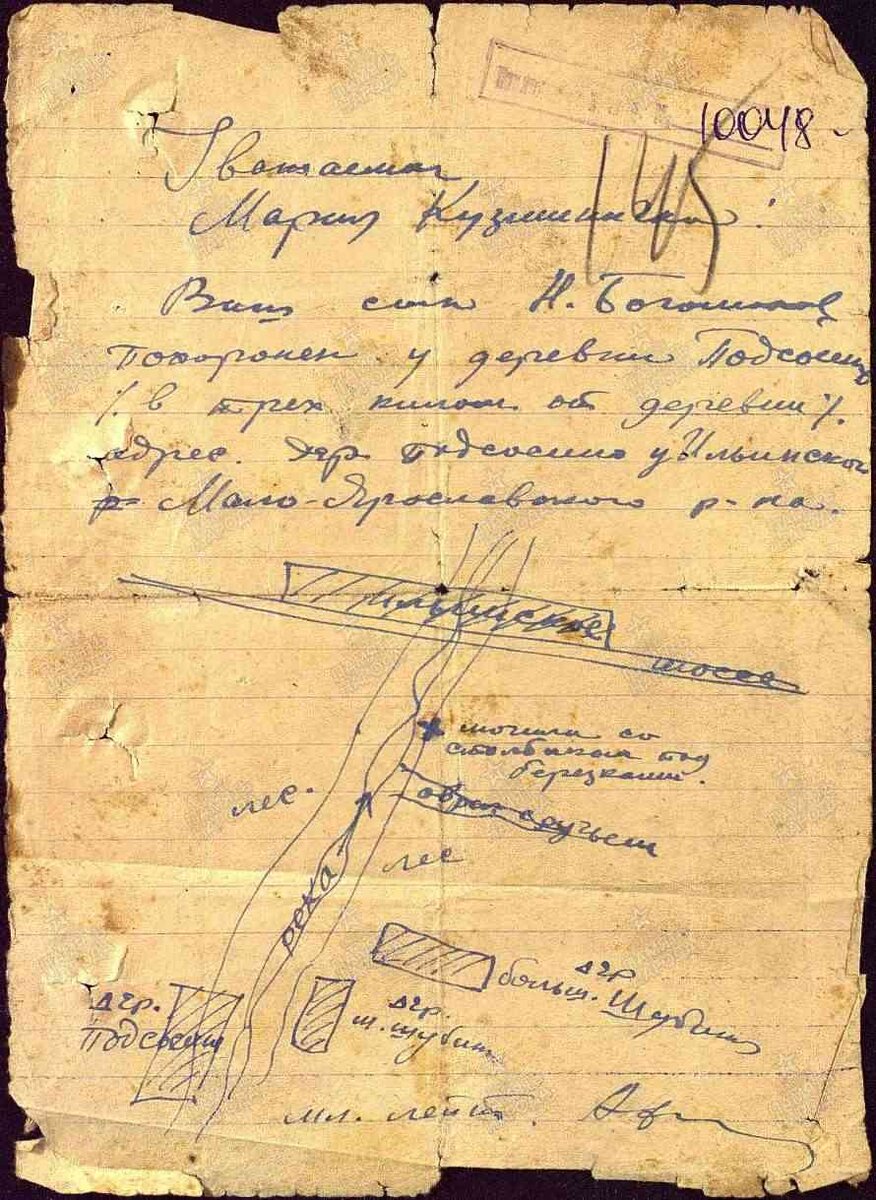 10048
145
Уважаемая
Мария Кузьминична!
Ваш сын Н.
похоронен у деревни Подсосино
/. в трех килом. от деревни /.
адрес. дер Подсосино у Ильинского
р- Мало-Ярославского р-на.
Ильинское
шоссе
могила со
столбиком под
березками.
лес.
овраг с ручьем
лес
река
дер.
больш. Шубино
дер.
Подсосино
дер.
м. шубино
мл. лейт.